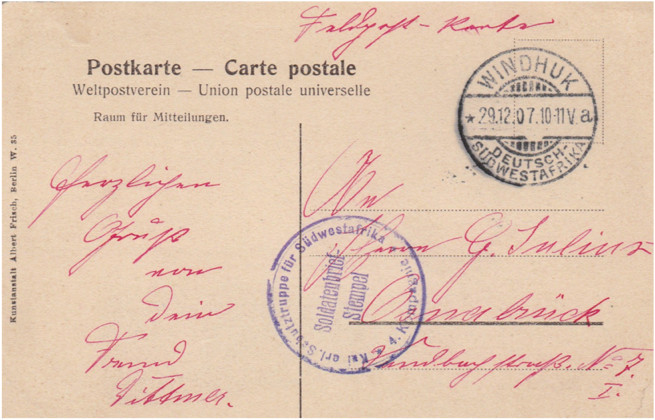 Feldpost-Karte
Postkarte — Carte postale
Weltpostverein — Union postale universelle
Raum für Mitteilungen.
WINDHUK
* 29.12.07.10-11V. a
DEUTSCH-
SÜDWESTAFRIKA
Kunstanstalt Albert Frisch, Berlin W. 35
Herzlichen
Gruß
von
Dein
Freund
Dittmer.
Kaiserl. Schutztruppe für Südwestafrika
Soldatenbrief
Stempel
4. Kompagnie
An
Herrn G. Julius
Osnabrück
straß. No 7
I.